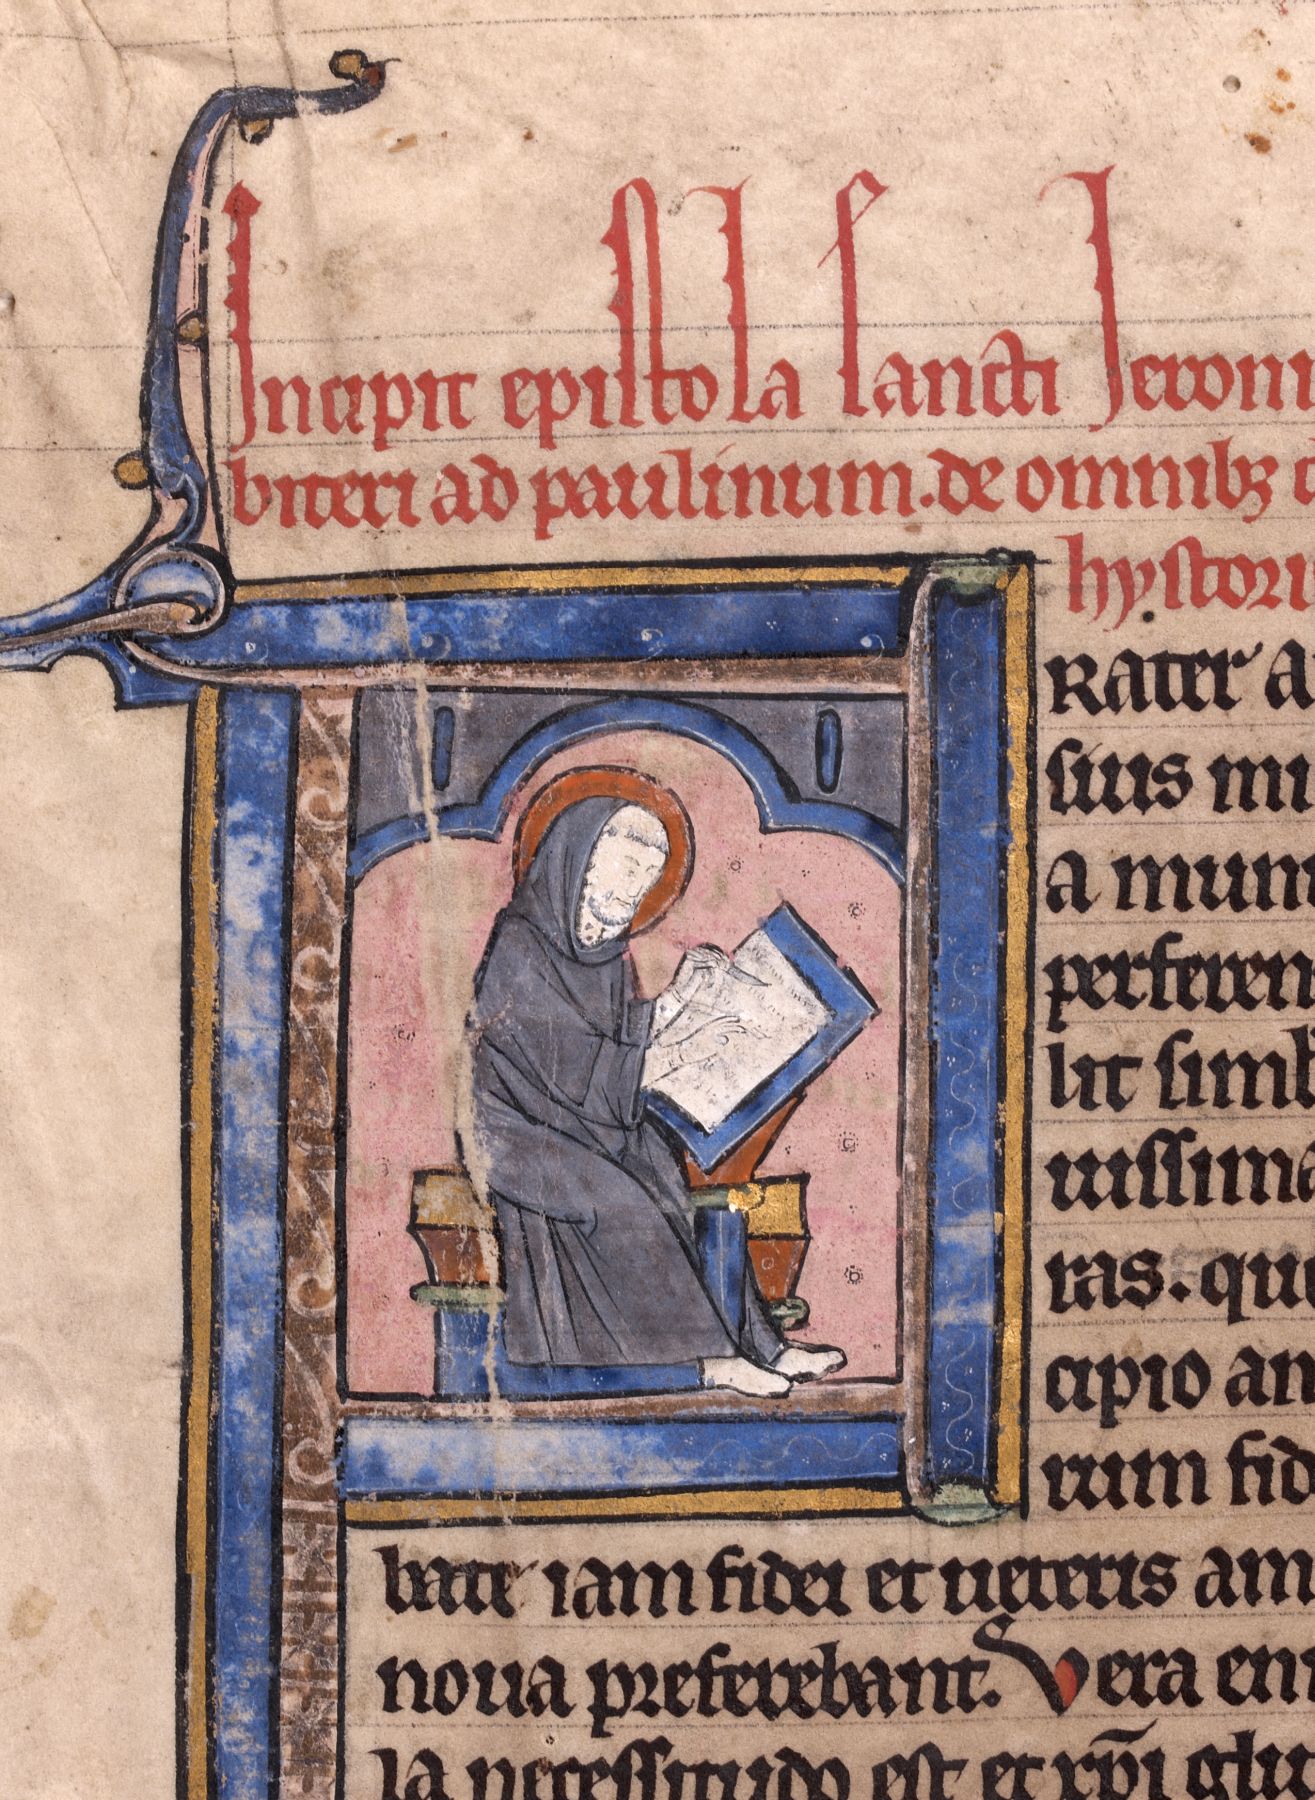 Incipit epistola sancti Jeroni
biteri ad paulinum. de omnibꝫ
hystori
Rater a
suus mi
a mun
perferen
lit simb
uissima
ras. que
cipio am
rum fid
bate iam fidei et ueteris am
noua preferebant. Vera en
la necessitudo est et xpi̅ glu